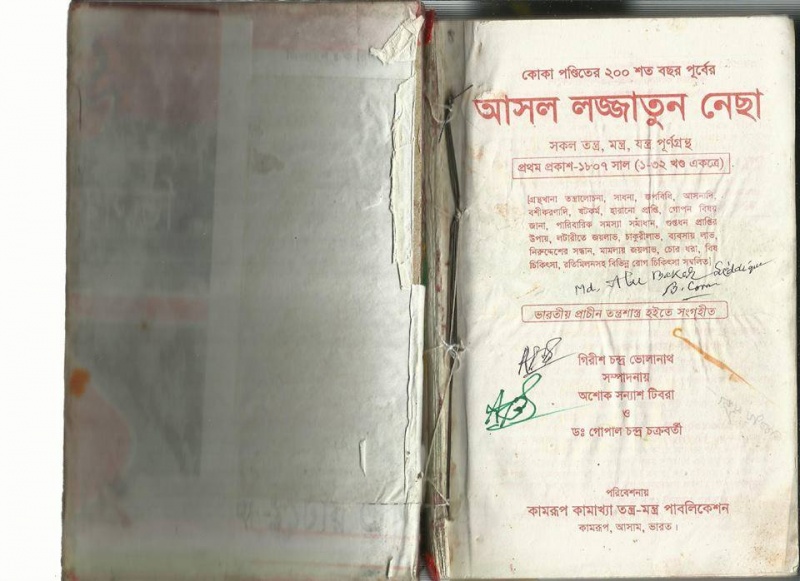 কোকা পণ্ডিতের ২০০ শত বছর পূর্বের
আসল লজ্জাতুন নেছা
সকল তন্ত্র, মন্ত্র, যন্ত্র পূর্ণগ্রন্থ
প্রথম প্রকাশ-১৮০৭ সাল (১-৩২ খণ্ড একত্রে)
[গ্রন্থখানা তন্ত্রালোচনা, সাধনা, জপবিধি, আসনাদি,
বশীকরণাদি, ষটকর্ম, হারানো প্রাপ্তি, গোপন বিষয়
জানা, পারিবারিক সমস্যা সমাধান, গুপ্তধন প্রাপ্তির
উপায়, লটারীতে জয়লাভ, চাকুরীলাভ, ব্যবসায় লাভ,
নিরুদ্দেশের সন্ধান, মামলায় জয়লাভ, চোর ধরা, বিষ
চিকিৎসা, রতিমিলনসহ বিভিন্ন রোগ চিকিৎসা সম্বলিত]
Md. Abu Bakar Siddique
B. Com
ভারতীয় প্রাচীন তন্ত্রশাস্ত্র হইতে সংগৃহীত
গিরীশ চন্দ্র ভোলানাথ
সম্পাদনায়
অশোক সন্যাশ টিবরা
ও
ডঃ গোপাল চন্দ্র চক্রবর্তী
পরিবেশনায়
কামরূপ কামাখ্যা তন্ত্র-মন্ত্র পাবলিকেশন
কামরূপ, আসাম, ভারত।